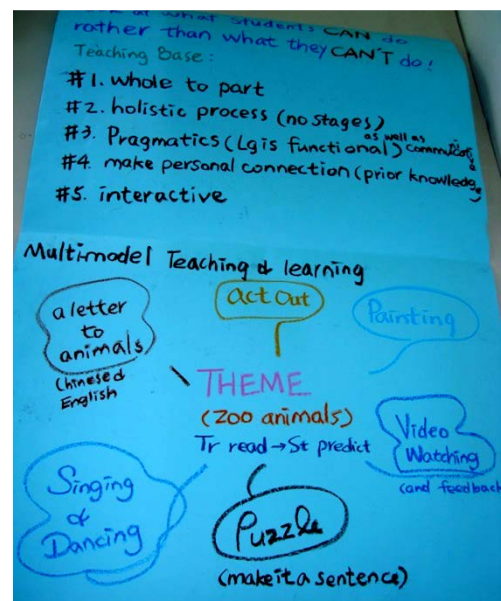 at what students CAN do
rather than what they CAN'T do!
Teaching Base:
#1. whole to part
#2. holistic process (no stages)
#3. Pragmatics (Lg is functional) as well as
#4. make personal connection (prior knowledge)
#5. interactive
Multimodel Teaching & learning
a letter
to
animals
Chinese &
English
act Out
Painting
THEME
(zoo animals)
Tr read → St predict
Video
Watching
(and feedback
Singing
&
Dancing
Puzzle
(make it a sentence)